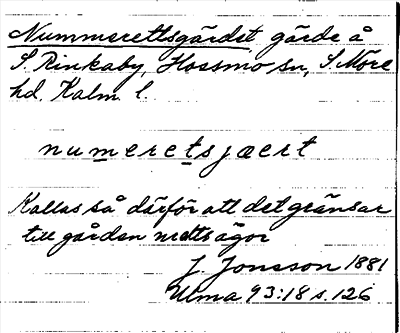 Nummerettsgärdet gärde å
S. Rinkaby, Hossmo sn, S. Möre
hd. Kalm. l.
numeretsjært
Kallas så därför att det gränsar
till gården nretts ägor
J. Jonsson 1881
Ulma 93:18 s. 126